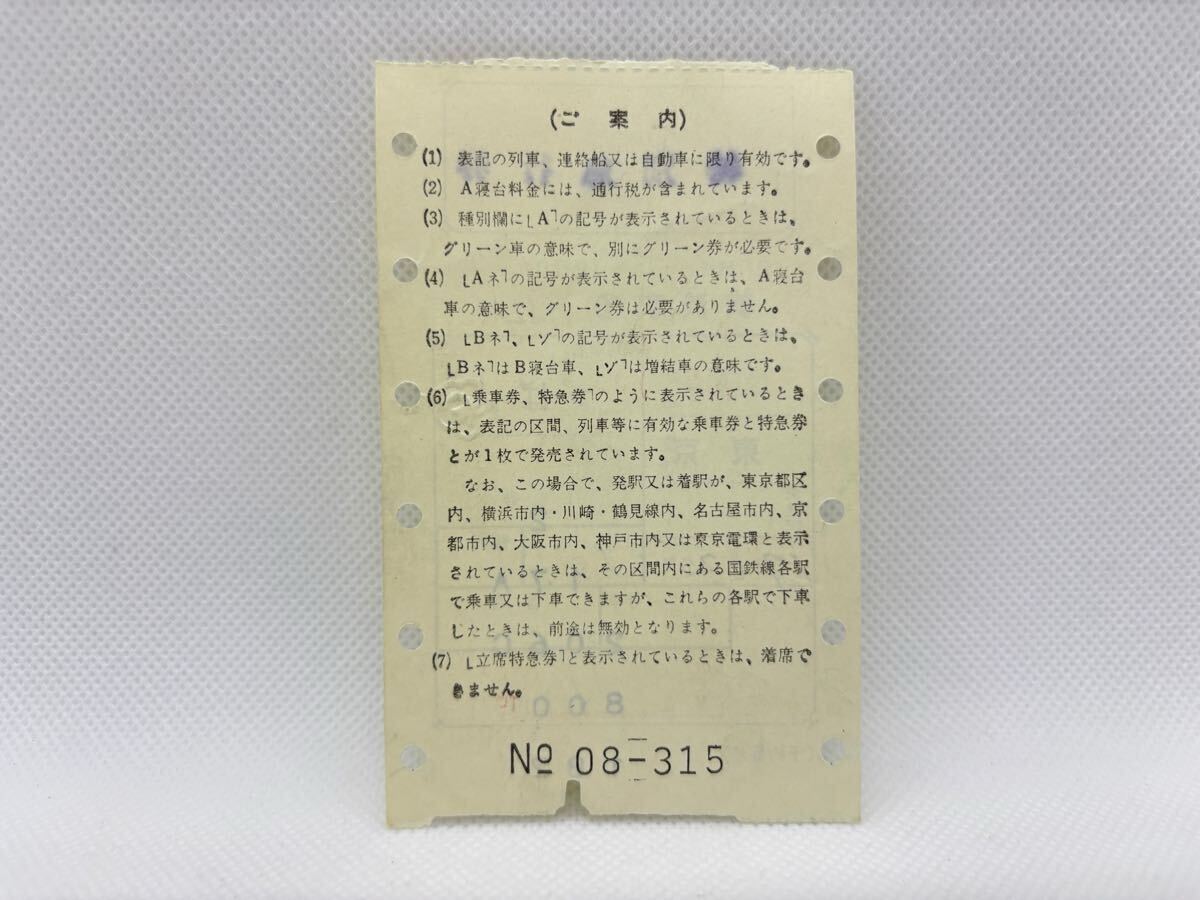 (ご案内)
(1) 表記の列車、連絡船又は自動車に限り有効です。
(2) A寝台料金には、通行税が含まれています。
(3) 種別欄に⌊A⌉の記号が表示されているときは、
グリーン車の意味で、別にグリーン券が必要です。
(4) ⌊Aネ⌉の記号が表示されているときは、A寝台
車の意味で、グリーン券は必要がありません。
(5) ⌊Bネ⌉、⌊ゾ⌉の記号が表示されているときは、
⌊Bネ⌉はB寝台車、⌊ゾ⌉は増結車の意味です。
(6) ⌊乗車券、特急券⌉のように表示されているとき
は、表記の区間、列車等に有効な乗車券と特急券
とが1枚で発売されています。
なお、この場合で、発駅又は着駅が、東京都区
内、横浜市内・川崎・鶴見線内、名古屋市内、京
都市内、大阪市内、神戸市内又は東京電環と表示
されているときは、その区間内にある国鉄線各駅
で乗車又は下車できますが、これらの各駅で下車
したときは、前途は無効となります。
(7) ⌊立席特急券⌉と表示されているときは、着席で
きません。
№ 08-315